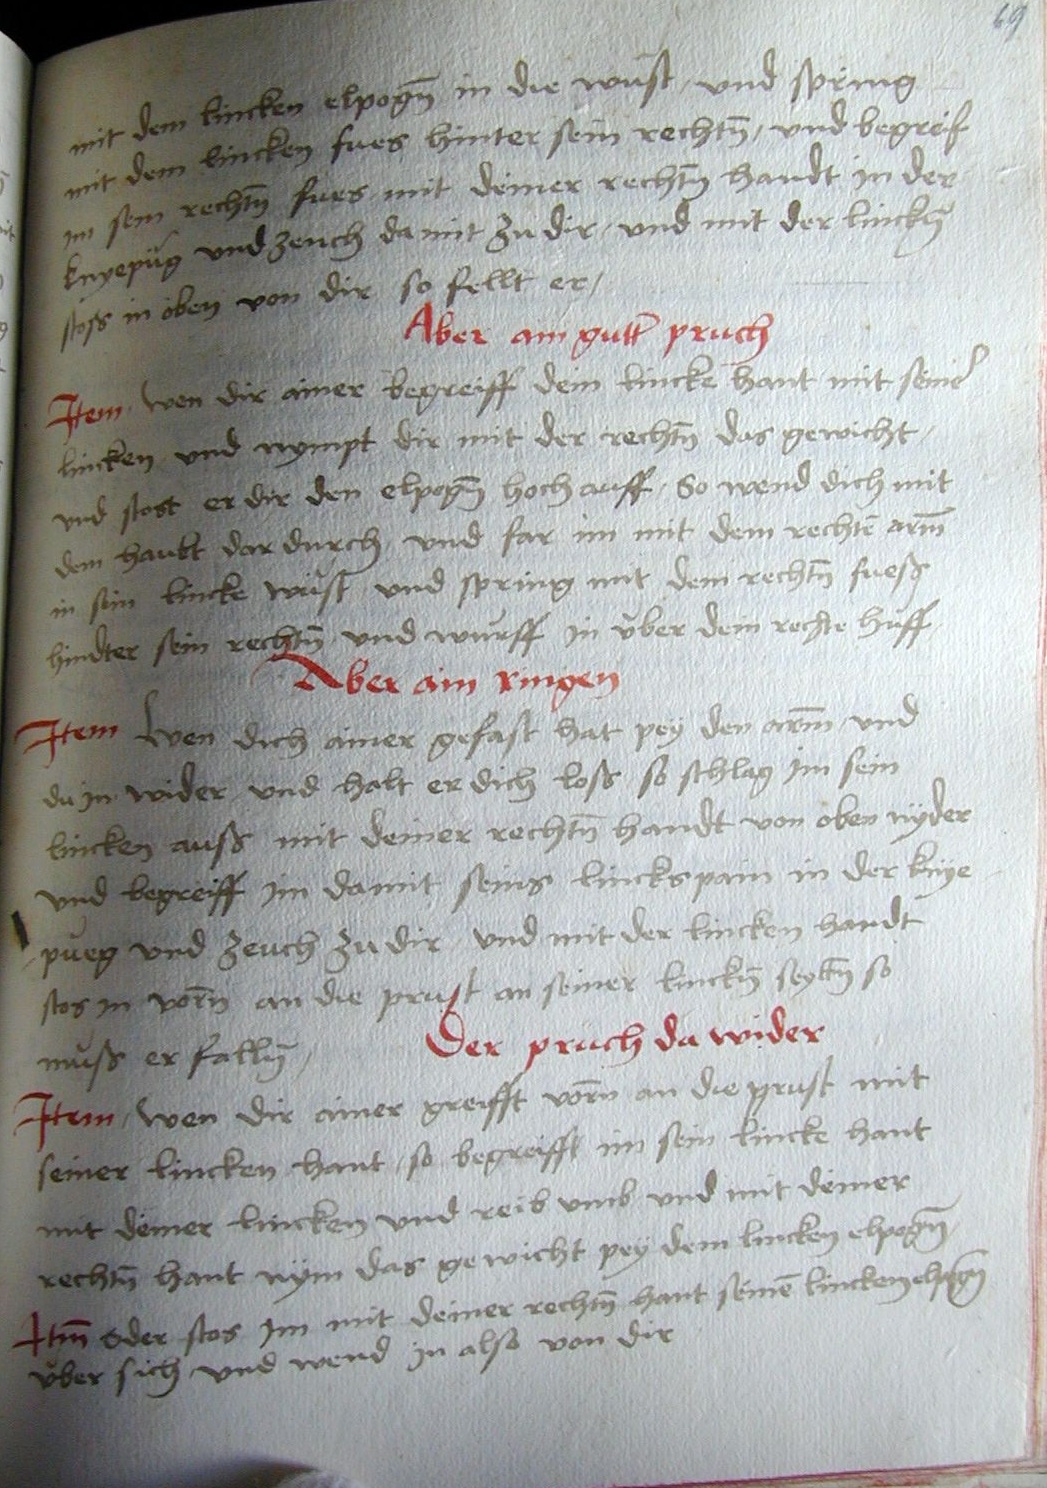 69
mit dem lincken elpogn̄ in die wüst / und spring
mit dem lincken fues hinter sein rechtn̄ / und begreif
im sein rechtn̄ fues mit deiner rechtn̄ handt in der
knyepüg und zeuch damit zu dir / und mit der linckn̄
stoss in oben von dir so fellt er /
Aber ain gutt̄ pruch
Item wen dir ainer begreiff dein lincke hant mit seiner
lincken und nympt dir mit der rechtn̄ das gewicht /
und stost er dir den elpogn̄ hoch auff / So wend dich mit
dem haubt dar durch und far im mit dem rechtē arm̄
in sein lincke wüst und spring mit dem rechtn̄ fuess
hindter sein rechtn̄ und wurff in über dein rechte huff
Aber ain ringen
Item wen dich ainer gefast hat pey den arm̄ und
du in wider und halt er dich loss so schlag im sein
lincken auss mit deiner rechtn̄ handt von oben nyder
und begreiff im damit seins linckspain in der knye
pueg und zeuch zu dir / und mit der lincken handt
stos in vorn̄ an die prust an seiner linckn̄ seyttn̄ so
muss er falln̄ /
Der pruch da wider
Item / wen dir ainer greifft vorn̄ an die prust mit
seiner lincken hant / so begreifft im sein lincke hant
mit deiner lincken und reib umb und mit deiner
rechtn̄ hant nym das gewicht pey dem lincken elpogn̄ /
Itm̄ oder stos im mit deiner rechtn̄ hant seinē lincken elpogn̄
über sich und wend in also von dir